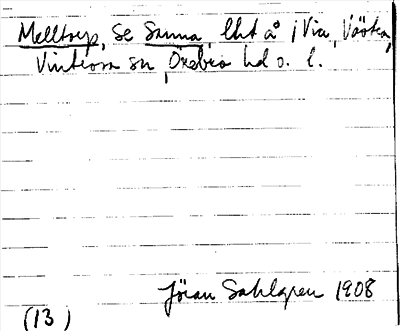 Melltorp, se Sanna, lht å i Via, Västra,
Vintrosa sn, Örebro hd o. l.
Jöran Sahlgren 1908
(13)